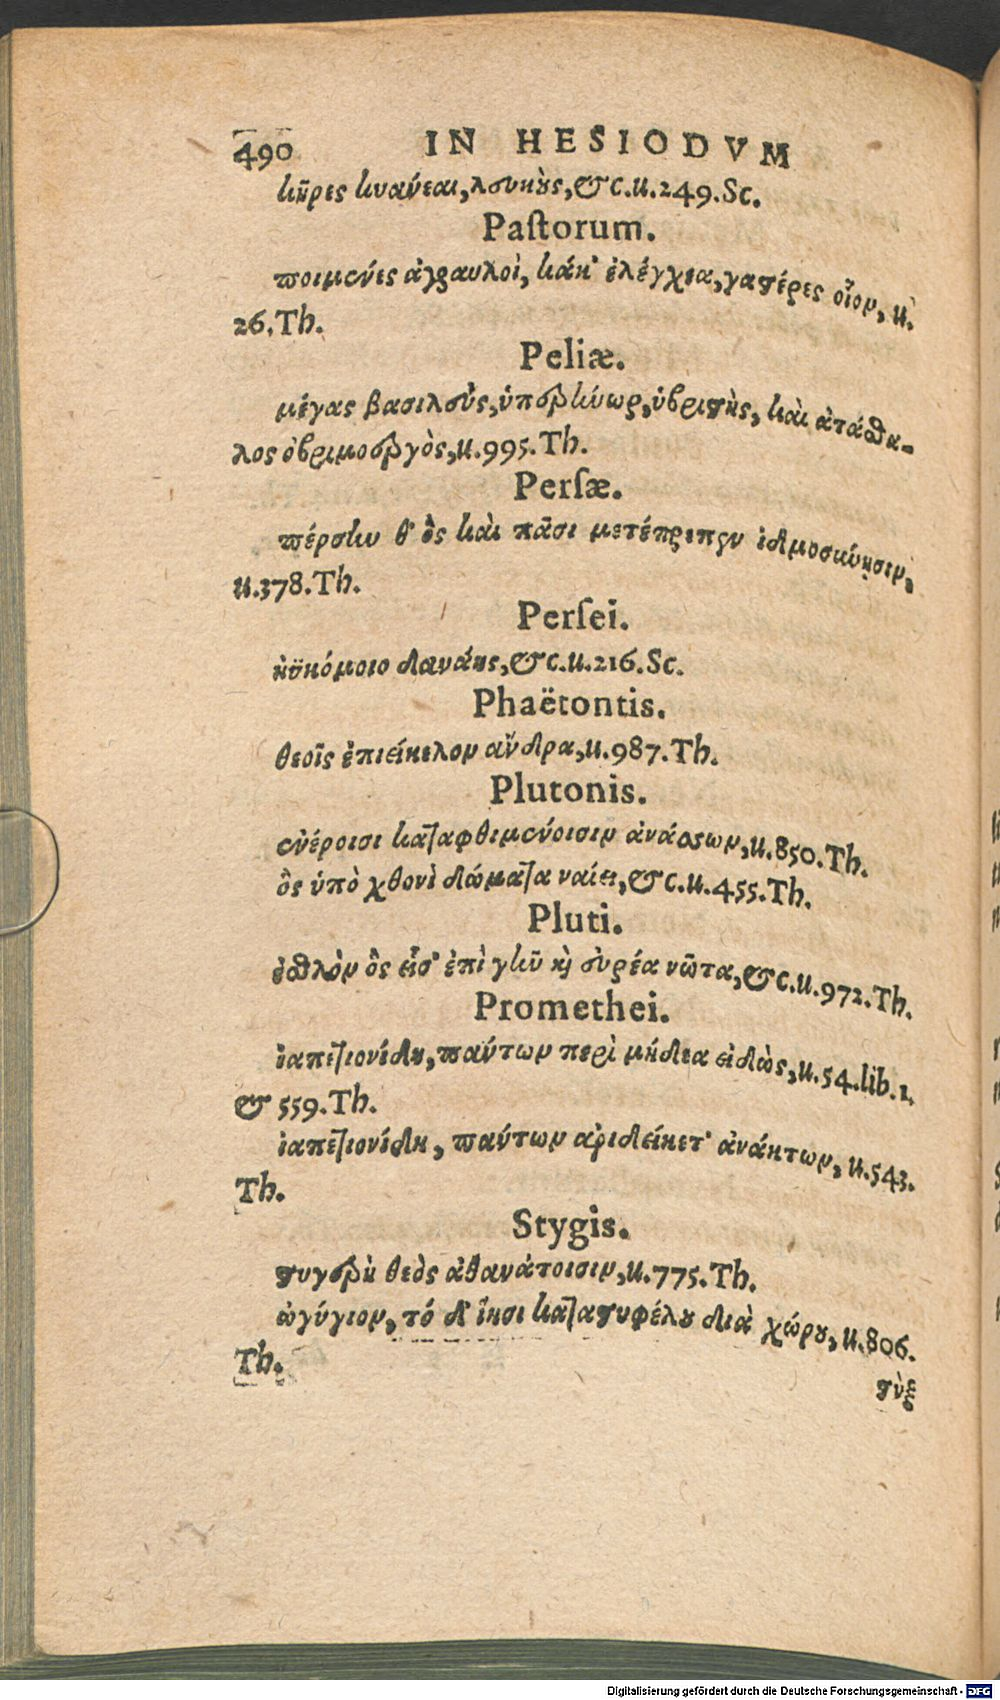 490 IN HESIODVM
κῆρες κυάνεαι, λευκοὺς, &c. u. 249. Sc.
Paſtorum.
ποιμένες ἀγραυλοὶ, κάκ' ἐλέγχεα, γαστέρες οἶον, u.
26. Th.
Peliæ.
μέγας βασιλεὺς, ὑπερήνωρ, ὑβριστὴς, καὶ ἀτάσθα-
λος ὀβριμοεργὸς, u. 995. Th.
Perſæ.
πέρσην θ' ὃς καὶ πᾶσι μετέπρεπεν ἰδμοσύνῃσιν,
u. 378. Th.
Perſei.
ἠϋκόμοιο δανάης, &c. u. 216. Sc.
Phaëtontis.
θεοῖς ἐπιείκελον ἄνδρα, u. 987. Th.
Plutonis.
ἐνέροισι καταφθιμένοισιν ἀνάσσων, u. 850. Th.
ὃς ὑπὸ χθονὶ δώματα ναίει, &c. u. 455. Th.
Pluti.
ἐσθλὸν ὃς εἶσ' ἐπὶ γῆν καὶ εὐρέα νῶτα, &c. u. 972. Th.
Promethei.
ἰαπετιονίδη, πάντων περὶ μήδεα εἰδὼς, u. 54. lib. 1.
& 559. Th.
ἰαπετιονίδη, πάντων ἀριδείκετ' ἀνάκτων, u. 543.
Th.
Stygis.
στυγερὴ θεὸς ἀθανάτοισιν, u. 775. Th.
ὠγύγιον, τό δ' ἵησι καταστυφέλου διὰ χώρου, u. 806.
Th.
στὺξ
Digitalisierung gefördert durch die Deutsche Forschungsgemeinschaft - DFG